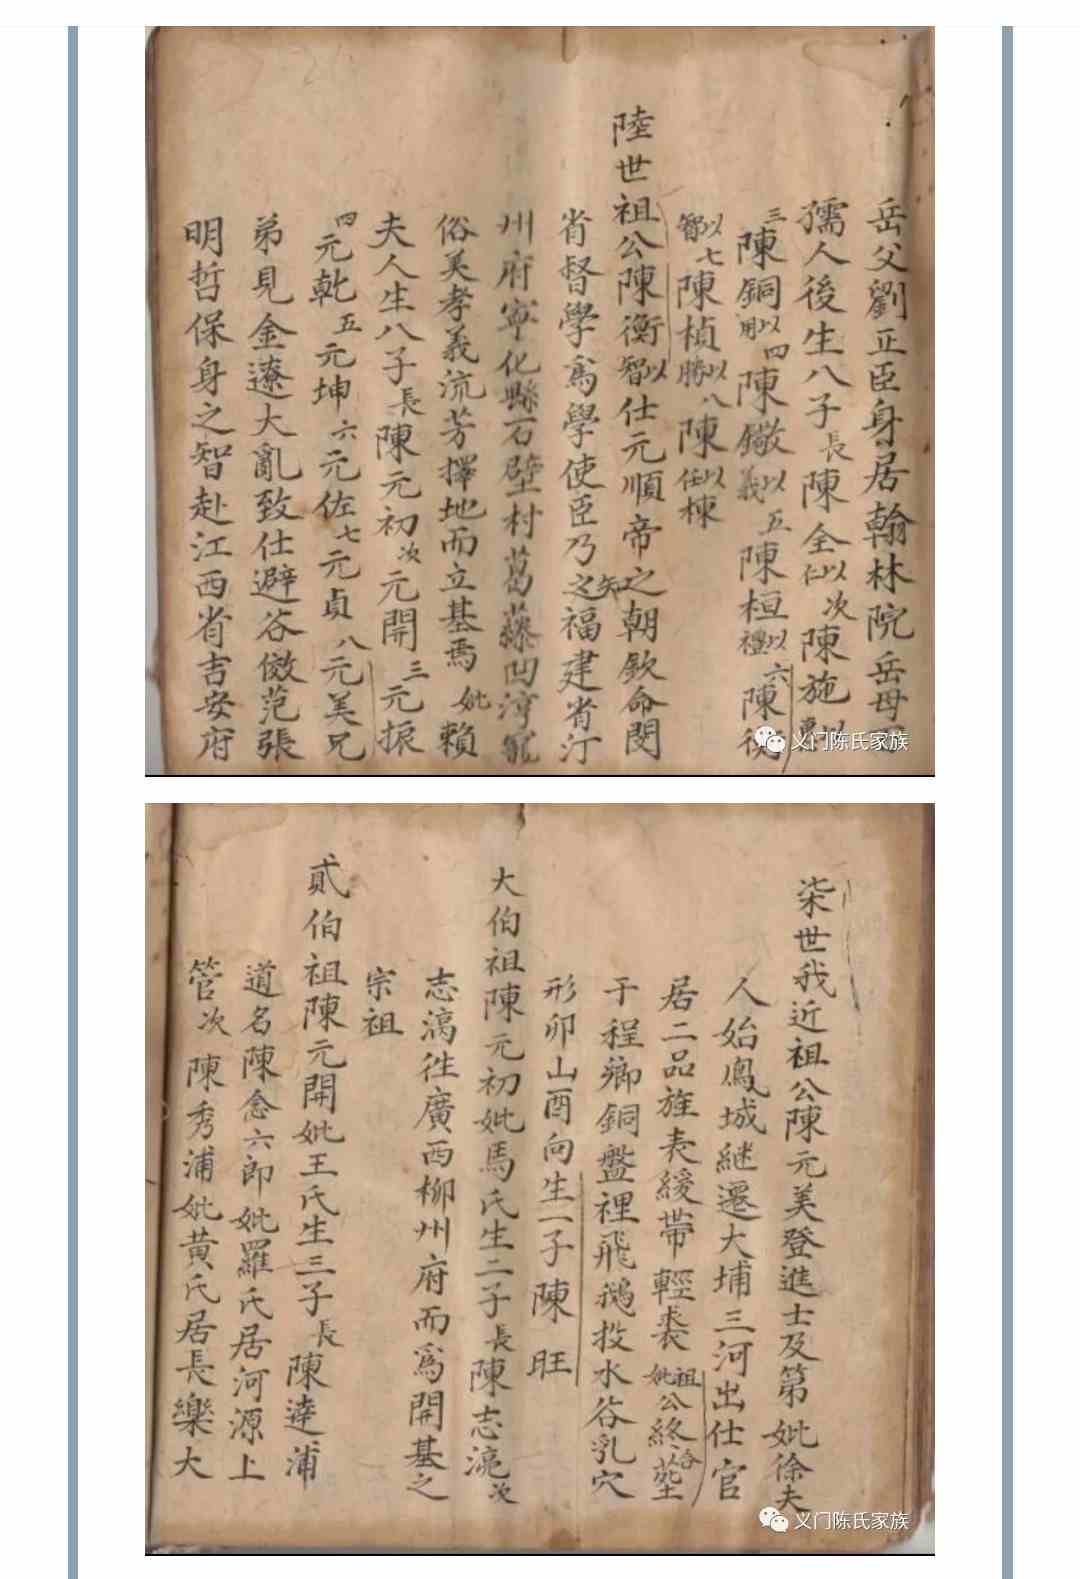 岳父劉正臣身居翰林院岳母
孺人後生八子長陳全以仁次陳施以
三陳銅以用四陳鏾以義五陳桓以禮六陳衡
以智七陳楨以勝八陳以任棟
陸世祖公陳衡以智仕元順帝之朝欽命閔
省督學爲學使臣乃知之福建省汀
州府寧化縣石壁村葛藤凹淳
俗美孝義流芳擇地而立基焉妣賴
夫人生八子長陳元初次元開三元振
四元乾五元坤六元佐七元貞八元美兄
弟見金遼大亂致仕避谷傚范張
明哲保身之智赴江西省吉安府
义门陈氏家族
柒世我近祖公陳元美登進士及第妣徐夫
人始鳳城継遷大埔三河出仕官
居二品旌表緩帶輕裘祖妣公終合塟
于程鄉銅盤裡飛鵝投水谷乳穴
形卯山酉向生一子陳旺
大伯祖陳元初妣馬氏生二子長陳志濂次
志漓徃廣西柳州府而爲開基之
宗祖
貳伯祖陳元開妣王氏生三子長陳達浦
道名陳念六郎妣羅氏居河源上
管次陳秀浦妣黃氏居長樂大
义门陈氏家族